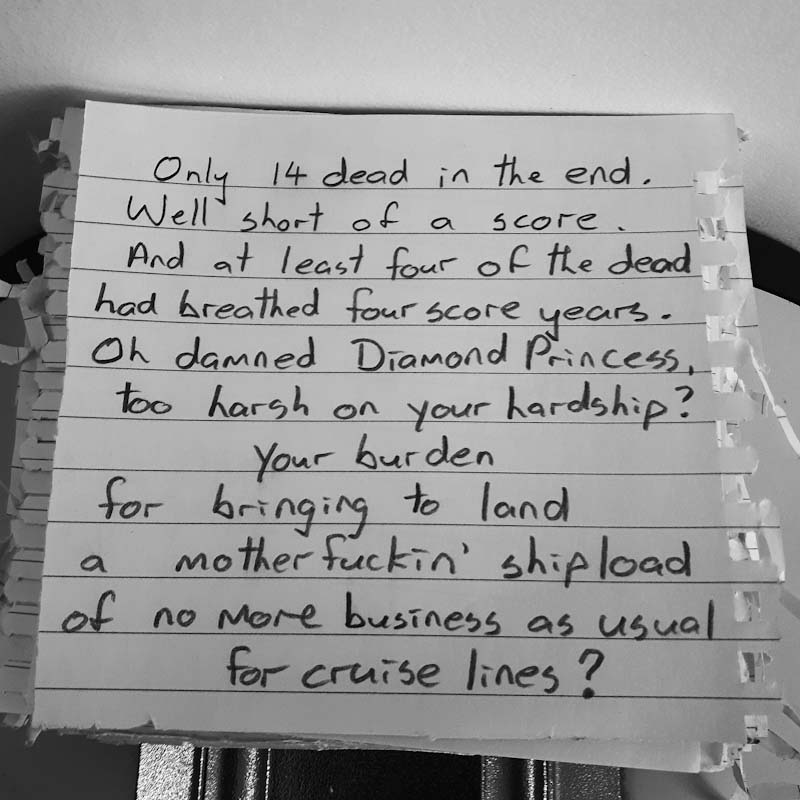 Only 14 dead in the end.
Well short of a score.
And at least four of the dead
had breathed four score years.
Oh damned Diamond Princess,
too harsh on your hardship?
Your burden
for bringing to land
a motherfuckin' shipload
of no more business as usual
for cruise lines?